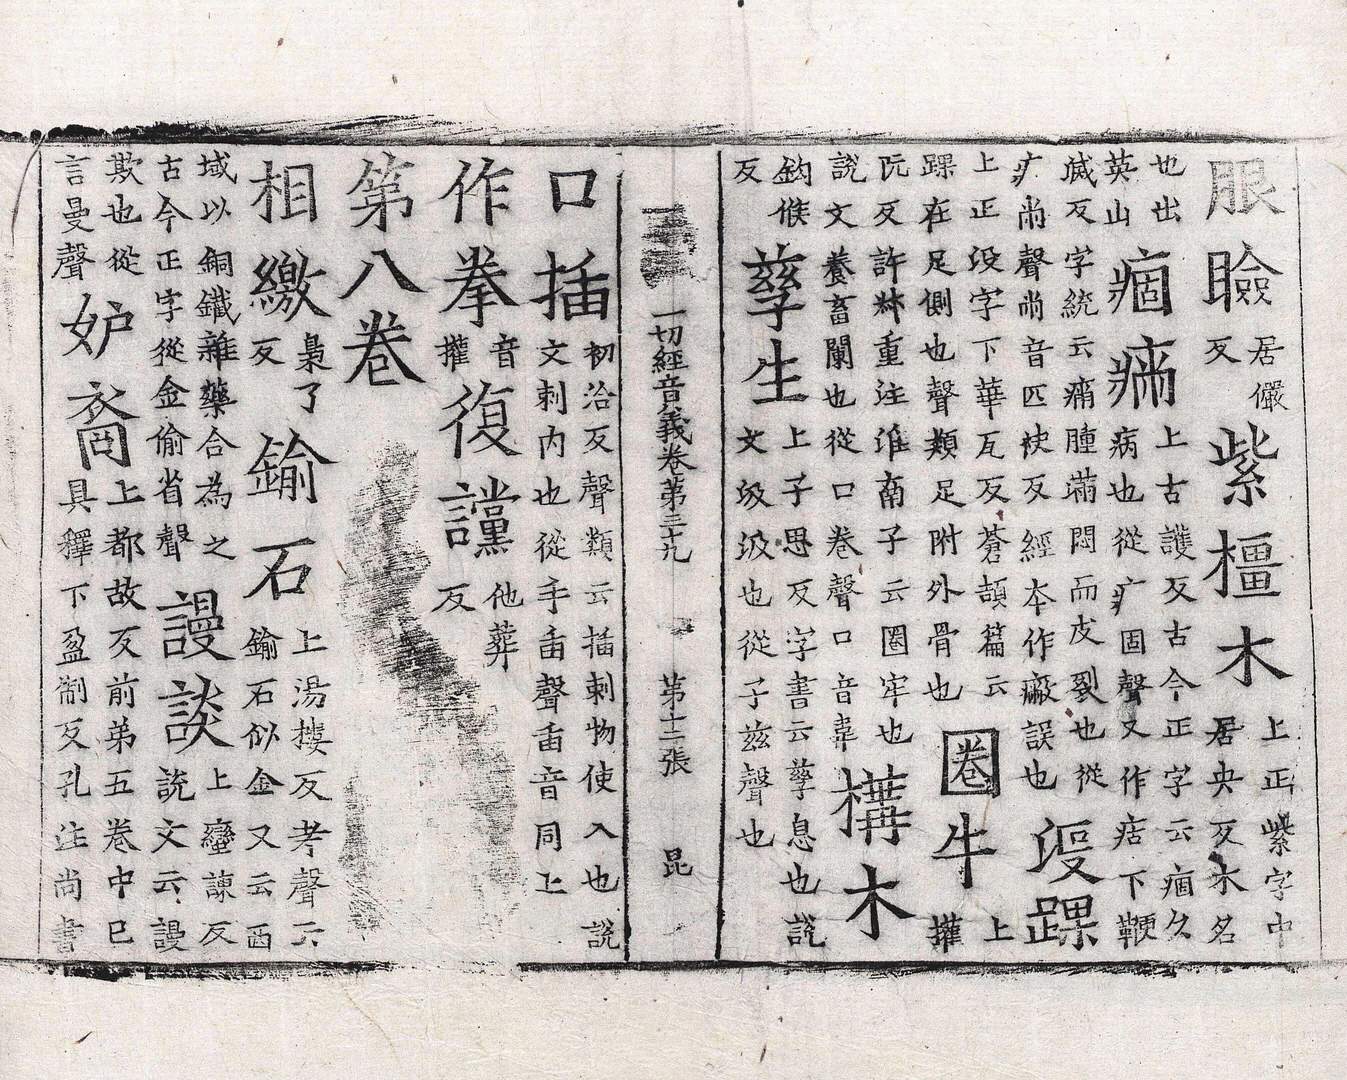 服瞼居儼反紫橿木上正紫字中居央反木名
也出英山痼㾓上古護反古今正字云痼久病也從疒固聲又作㾇下鞭
滅反字統云㾓腫滿悶而皮裂也從疒㡀聲㡀音匹袂反經本作癜誤也𣸧踝
上正没字下華瓦反蒼頡篇云踝在足側也聲類足附外骨也圈牛上攉
阮反許叔重注淮南子云圈牢也說文養畜闌也從口卷聲口音韋構木
鉤候反孳生上子思反字書云孳息也說文孜汲也從子茲聲也
一切經音義卷第三十九 第十二張 昆
口插初洽反聲類云插刺物使入也說文刺内也從手臿聲臿音同上
作拳音攉復讜他葬反
第八卷
相繳梟了反鍮石上湯樓反考聲云鍮石似金又云西
域以銅鐵雜藥合為之古今正字從金偷省聲謾談上蠻諫反說文云謾
欺也從言曼聲妒裔上都故反前弟五卷中已具釋下盈制反孔注尚書